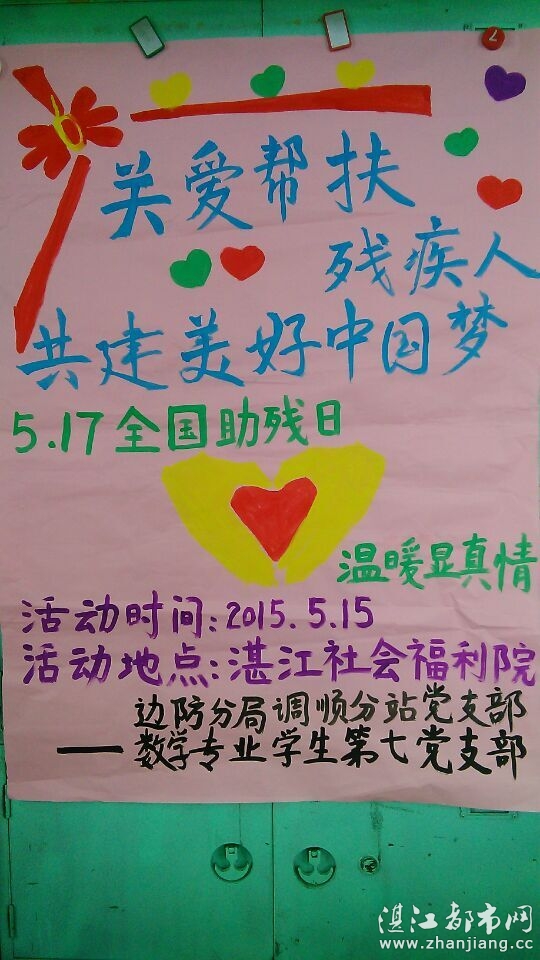 关爱帮扶
残疾人
共建美好中国梦
5.17全国助残日
温暖显真情
活动时间:2015.5.15
活动地点:湛江社会福利院
边防分局调顺分站党支部
——数学专业学生第七党支部
湛江都市网
www.zhanjiang.cc